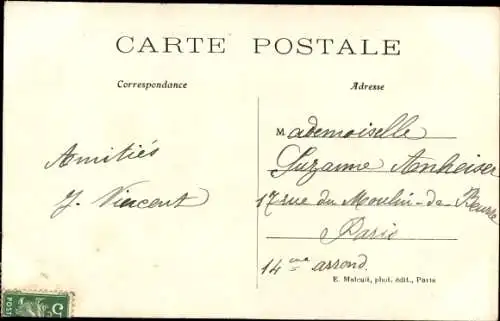 CARTE POSTALE
Correspondance
Adresse
Mademoiselle
Suzanne Amheiser
17 rue du Moulin-de Beurre
Paris
14eme arrond.
Amitiés
J. Vincent
E. Malcuit, phot. édit., Paris
5c
POST